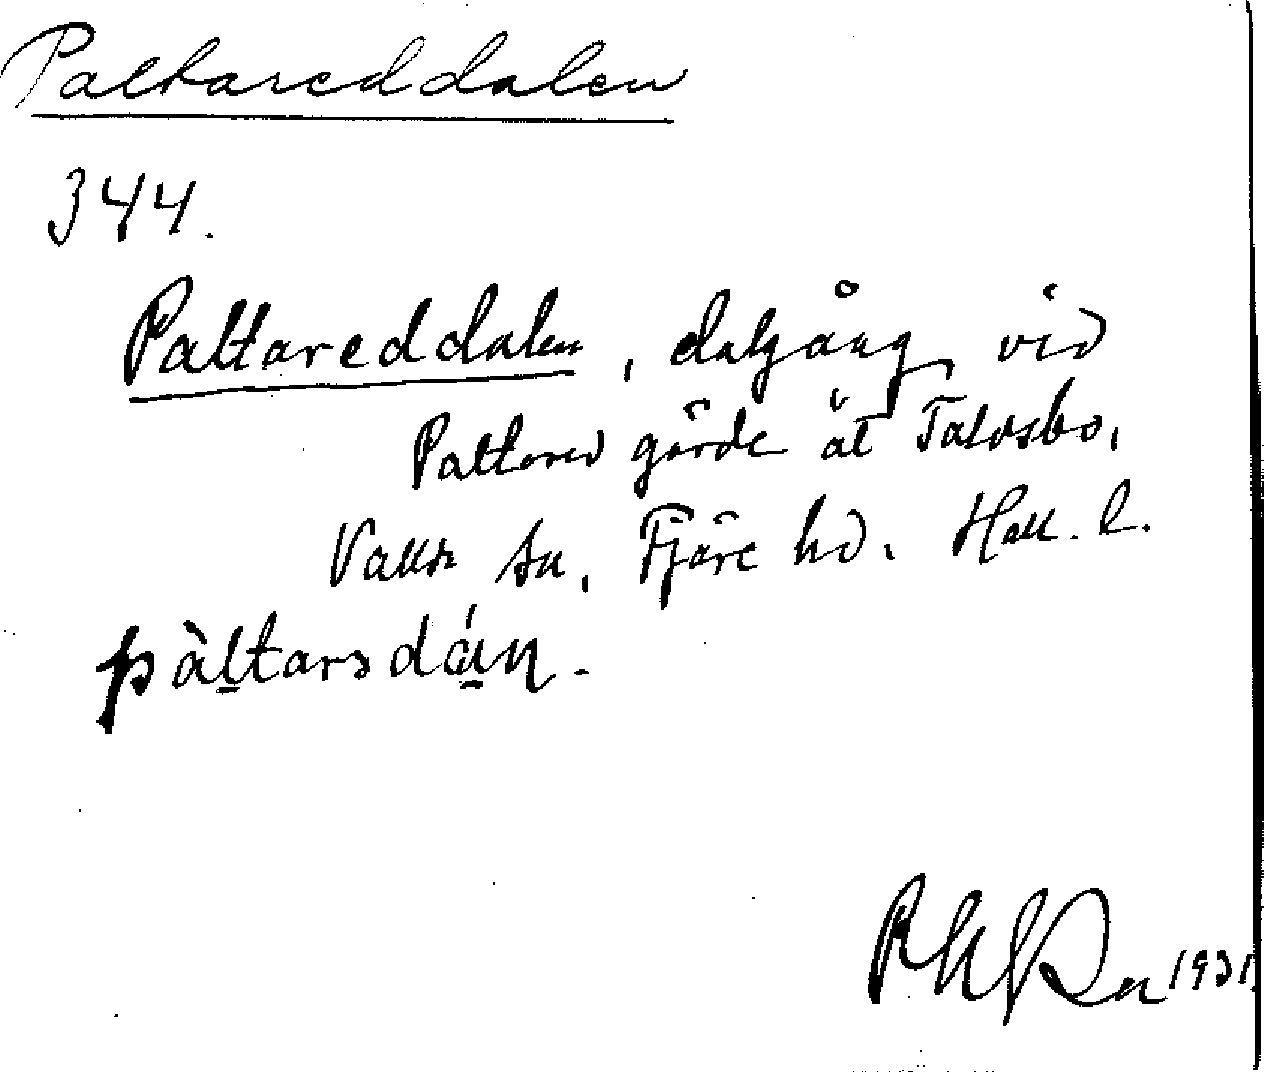 Paltareddalen
344.
Paltareddalen, dalgång vid
Paltared gärde åt
Valda sn, Fjäre hd. Hall. l.
pàltarsdáɳ.
1931